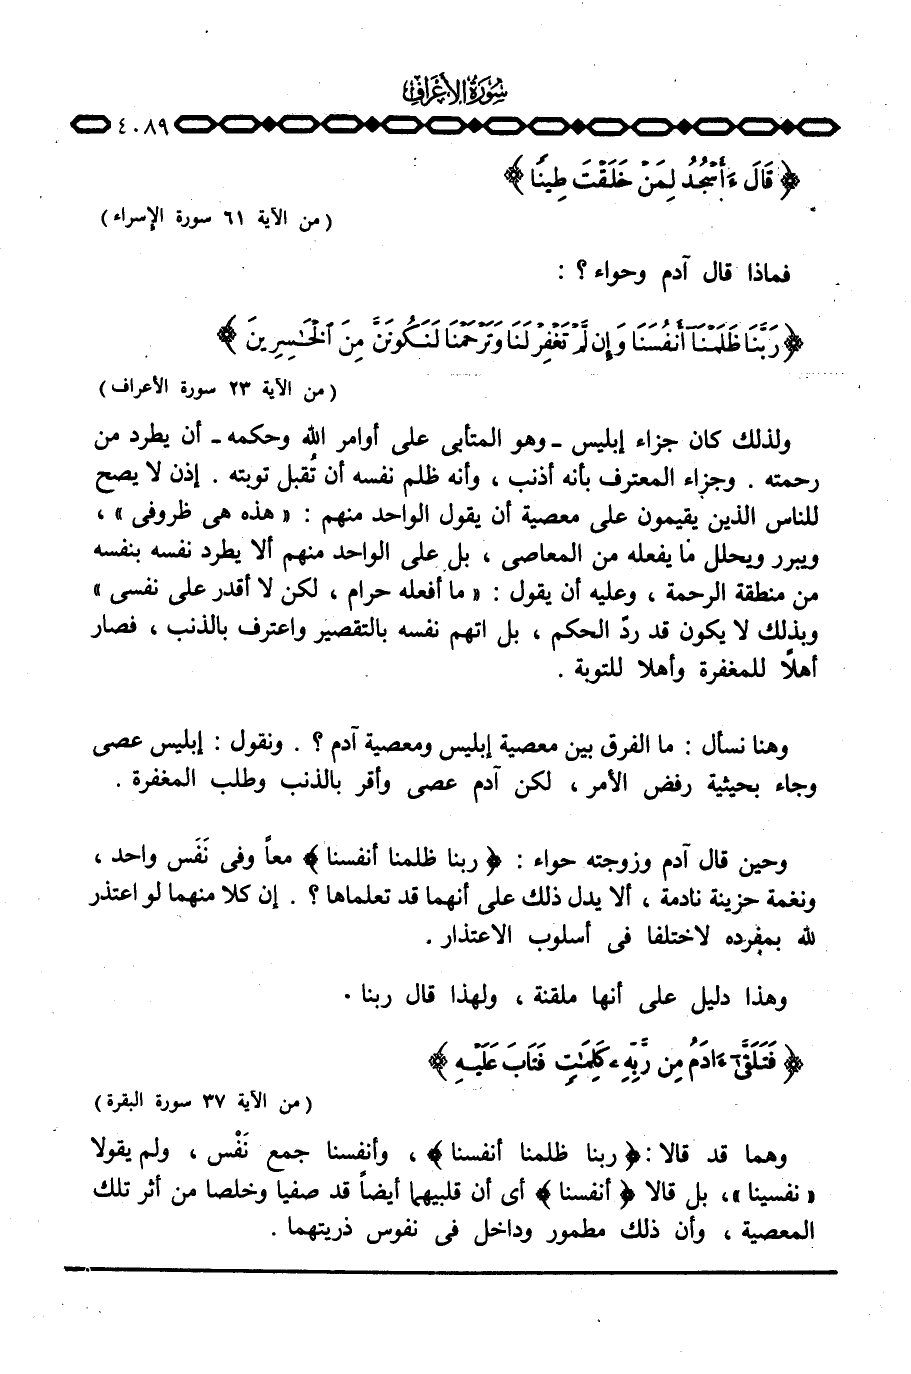 سُورَةُ الأَعْرَافِ
٤٠٨٩
﴿ قَالَ ءَأَسْجُدُ لِمَنْ خَلَقْتَ طِينًا ﴾
( من الآية ٦١ سورة الإسراء )
فماذا قال آدم وحواء ؟ :
﴿ رَبَّنَا ظَلَمْنَآ أَنفُسَنَا وَإِن لَّمْ تَغْفِرْ لَنَا وَتَرْحَمْنَا لَنَكُونَنَّ مِنَ ٱلْخَٰسِرِينَ ﴾
( من الآية ٢٣ سورة الأعراف )
ولذلك كان جزاء إبليس ـ وهو المتأبى على أوامر الله وحكمه ـ أن يطرد من
رحمته . وجزاء المعترف بأنه أذنب ، وأنه ظلم نفسه أن تُقبل توبته . إذن لا يصح
للناس الذين يقيمون على معصية أن يقول الواحد منهم : « هذه هى ظروفى » ،
ويبرر ويحلل ما يفعله من المعاصى ، بل على الواحد منهم ألا يطرد نفسه بنفسه
من منطقة الرحمة ، وعليه أن يقول : « ما أفعله حرام ، لكن لا أقدر على نفسى »
وبذلك لا يكون قد ردّ الحكم ، بل اتهم نفسه بالتقصير واعترف بالذنب ، فصار
أهلاً للمغفرة وأهلا للتوبة .
وهنا نسأل : ما الفرق بين معصية إبليس ومعصية آدم ؟ . ونقول : إبليس عصى
وجاء بحيثية رفض الأمر ، لكن آدم عصى وأقر بالذنب وطلب المغفرة .
وحين قال آدم وزوجته حواء : ﴿ ربنا ظلمنا أنفسنا ﴾ معاً وفى نَفَس واحد ،
ونغمة حزينة نادمة ، ألا يدل ذلك على أنهما قد تعلماها ؟ . إن كلا منهما لو اعتذر
لله بمفرده لاختلفا فى أسلوب الاعتذار .
وهذا دليل على أنها ملقنة ، ولهذا قال ربنا .
﴿ فَتَلَقَّىٰٓ ءَادَمُ مِن رَّبِّهِۦ كَلِمَٰتٍ فَتَابَ عَلَيْهِ ﴾
( من الآية ٣٧ سورة البقرة )
وهما قد قالا : ﴿ ربنا ظلمنا أنفسنا ﴾ ، وأنفسنا جمع نَفْس ، ولم يقولا
« نفسينا » ، بل قالا ﴿ أنفسنا ﴾ أى أن قلبيهما أيضاً قد صفيا وخلصا من أثر تلك
المعصية ، وأن ذلك مطمور وداخل فى نفوس ذريتهما .